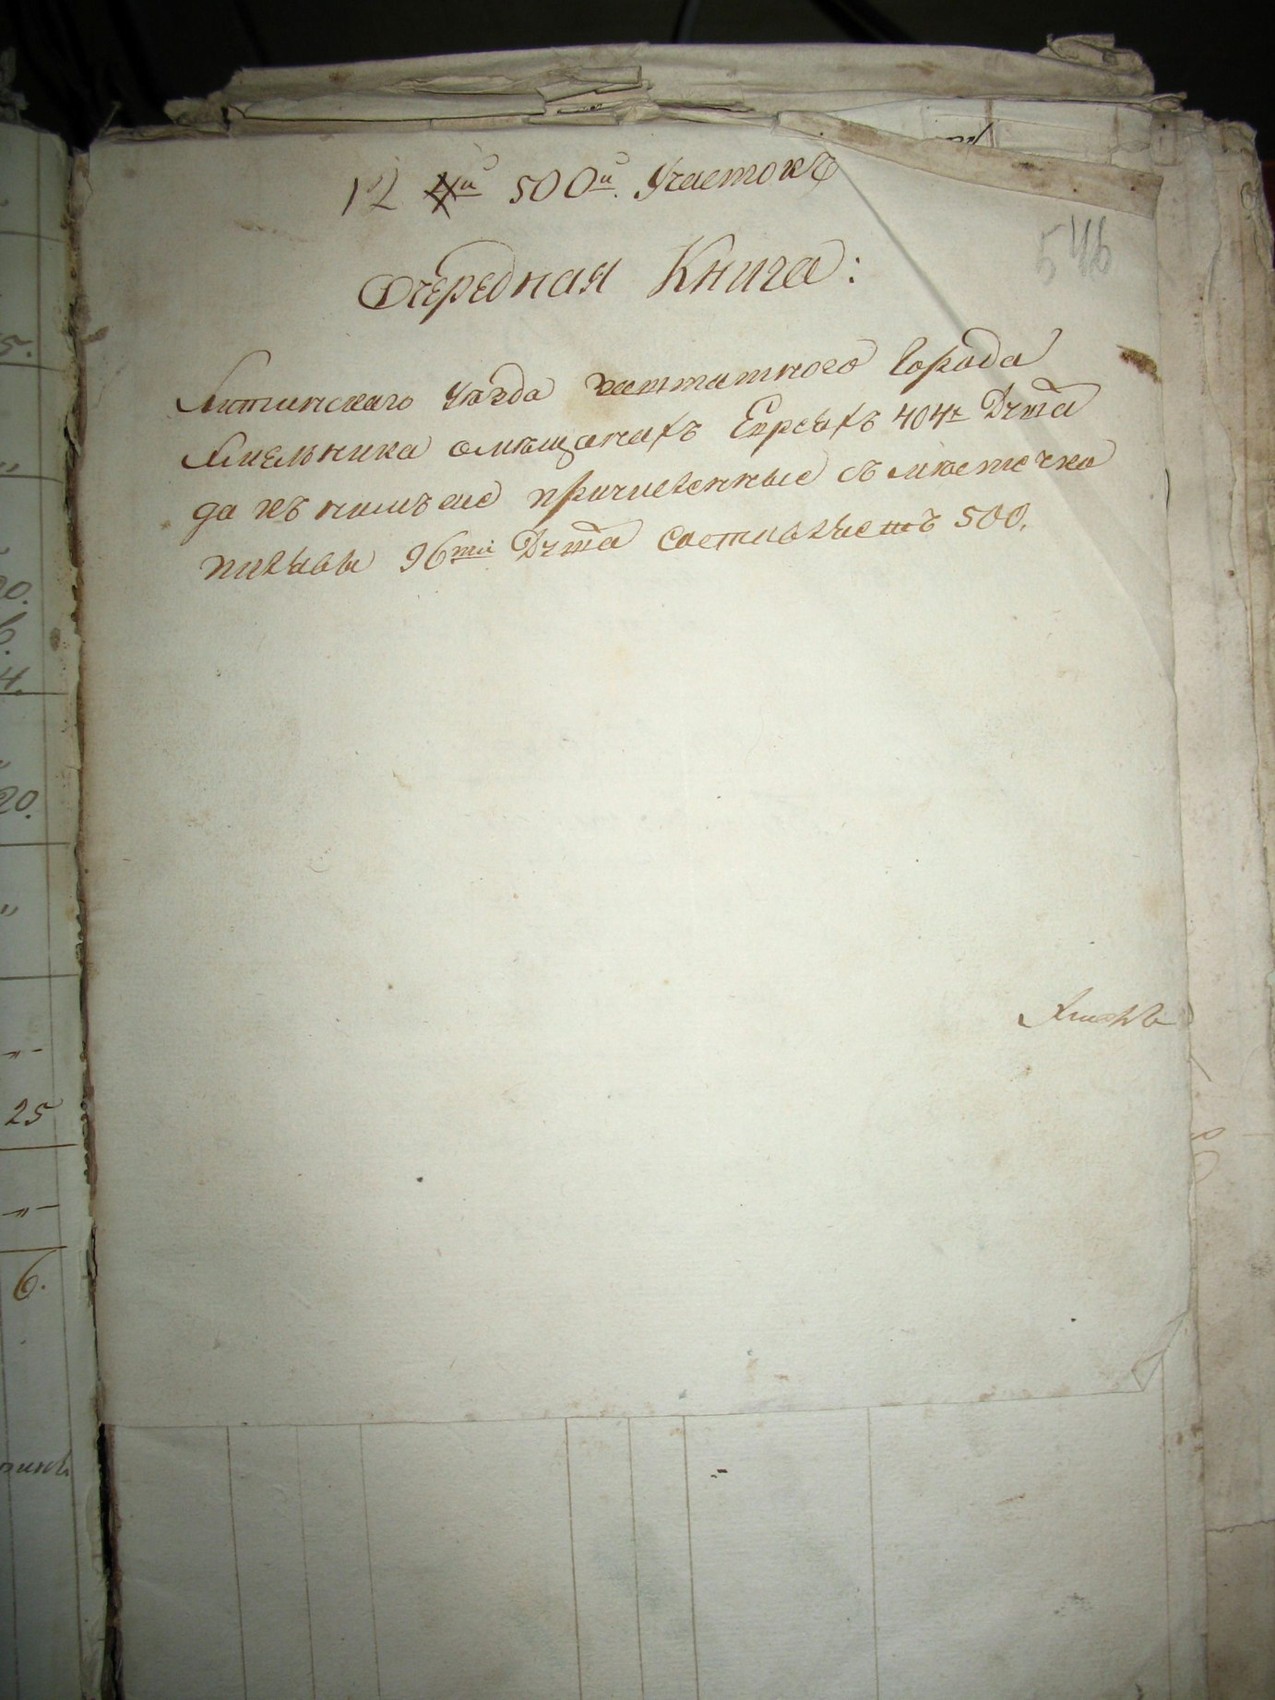 12 4й 500й Участокъ
546
Очередная Книга:
Литинскаго уѣзда заштатного Города
Хмельника о мѣщанахъ Евреяхъ 404х Душъ
да къ нимъ еще причисленные съ местечка
Пилявы 96ти Душъ составляетъ 500.
5.
20.
6.
4.
20.
25
6.